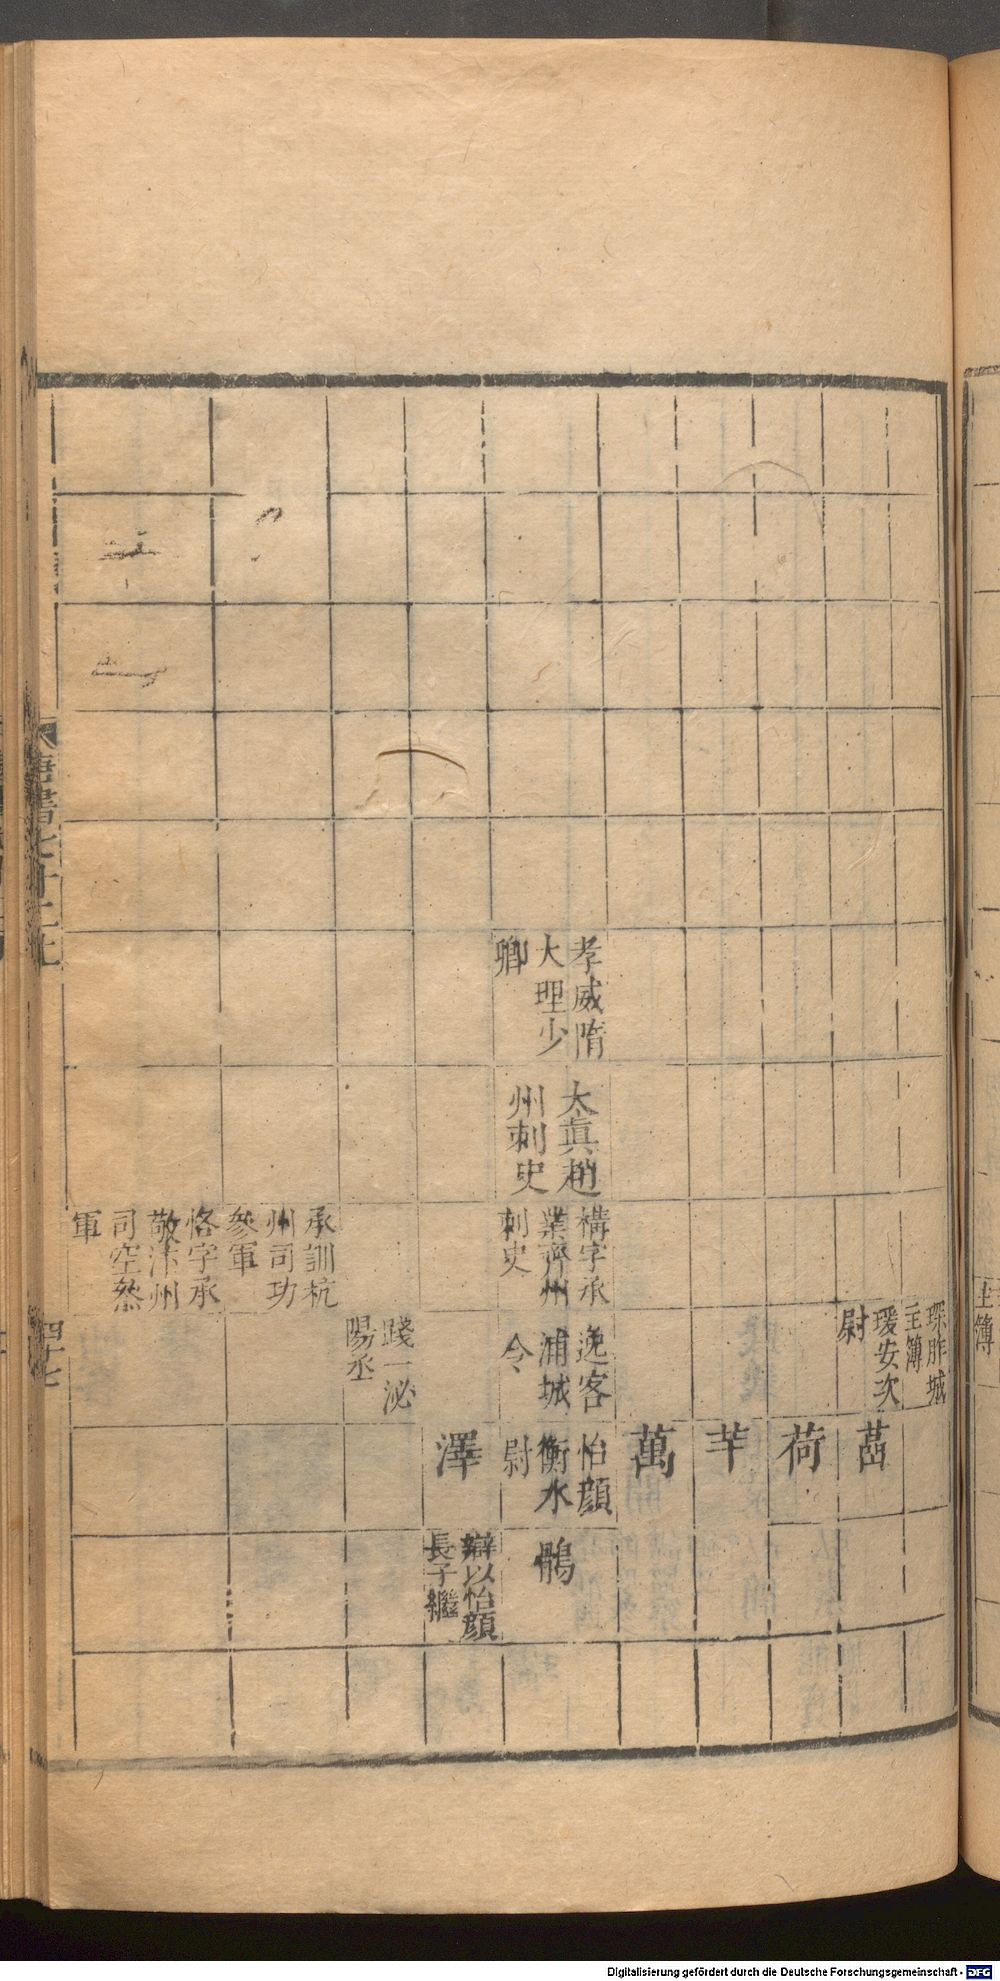 琛胙城
主簿
瑗安次
尉
萏
荷
芊
萬
孝威隋
大理少
卿
太真趙
州刺史
構字承
業齊州
刺史
逸客
浦城
令
怡顏
衡水
尉
鶻
澤
辯以怡顏
長子繼
踐一泌
陽丞
承訓杭
州司功
參軍
恪字承
敬汴州
司空叅
軍
唐書七十二上
四十七
主簿
Digitalisierung gefördert durch die Deutsche Forschungsgemeinschaft - DFG